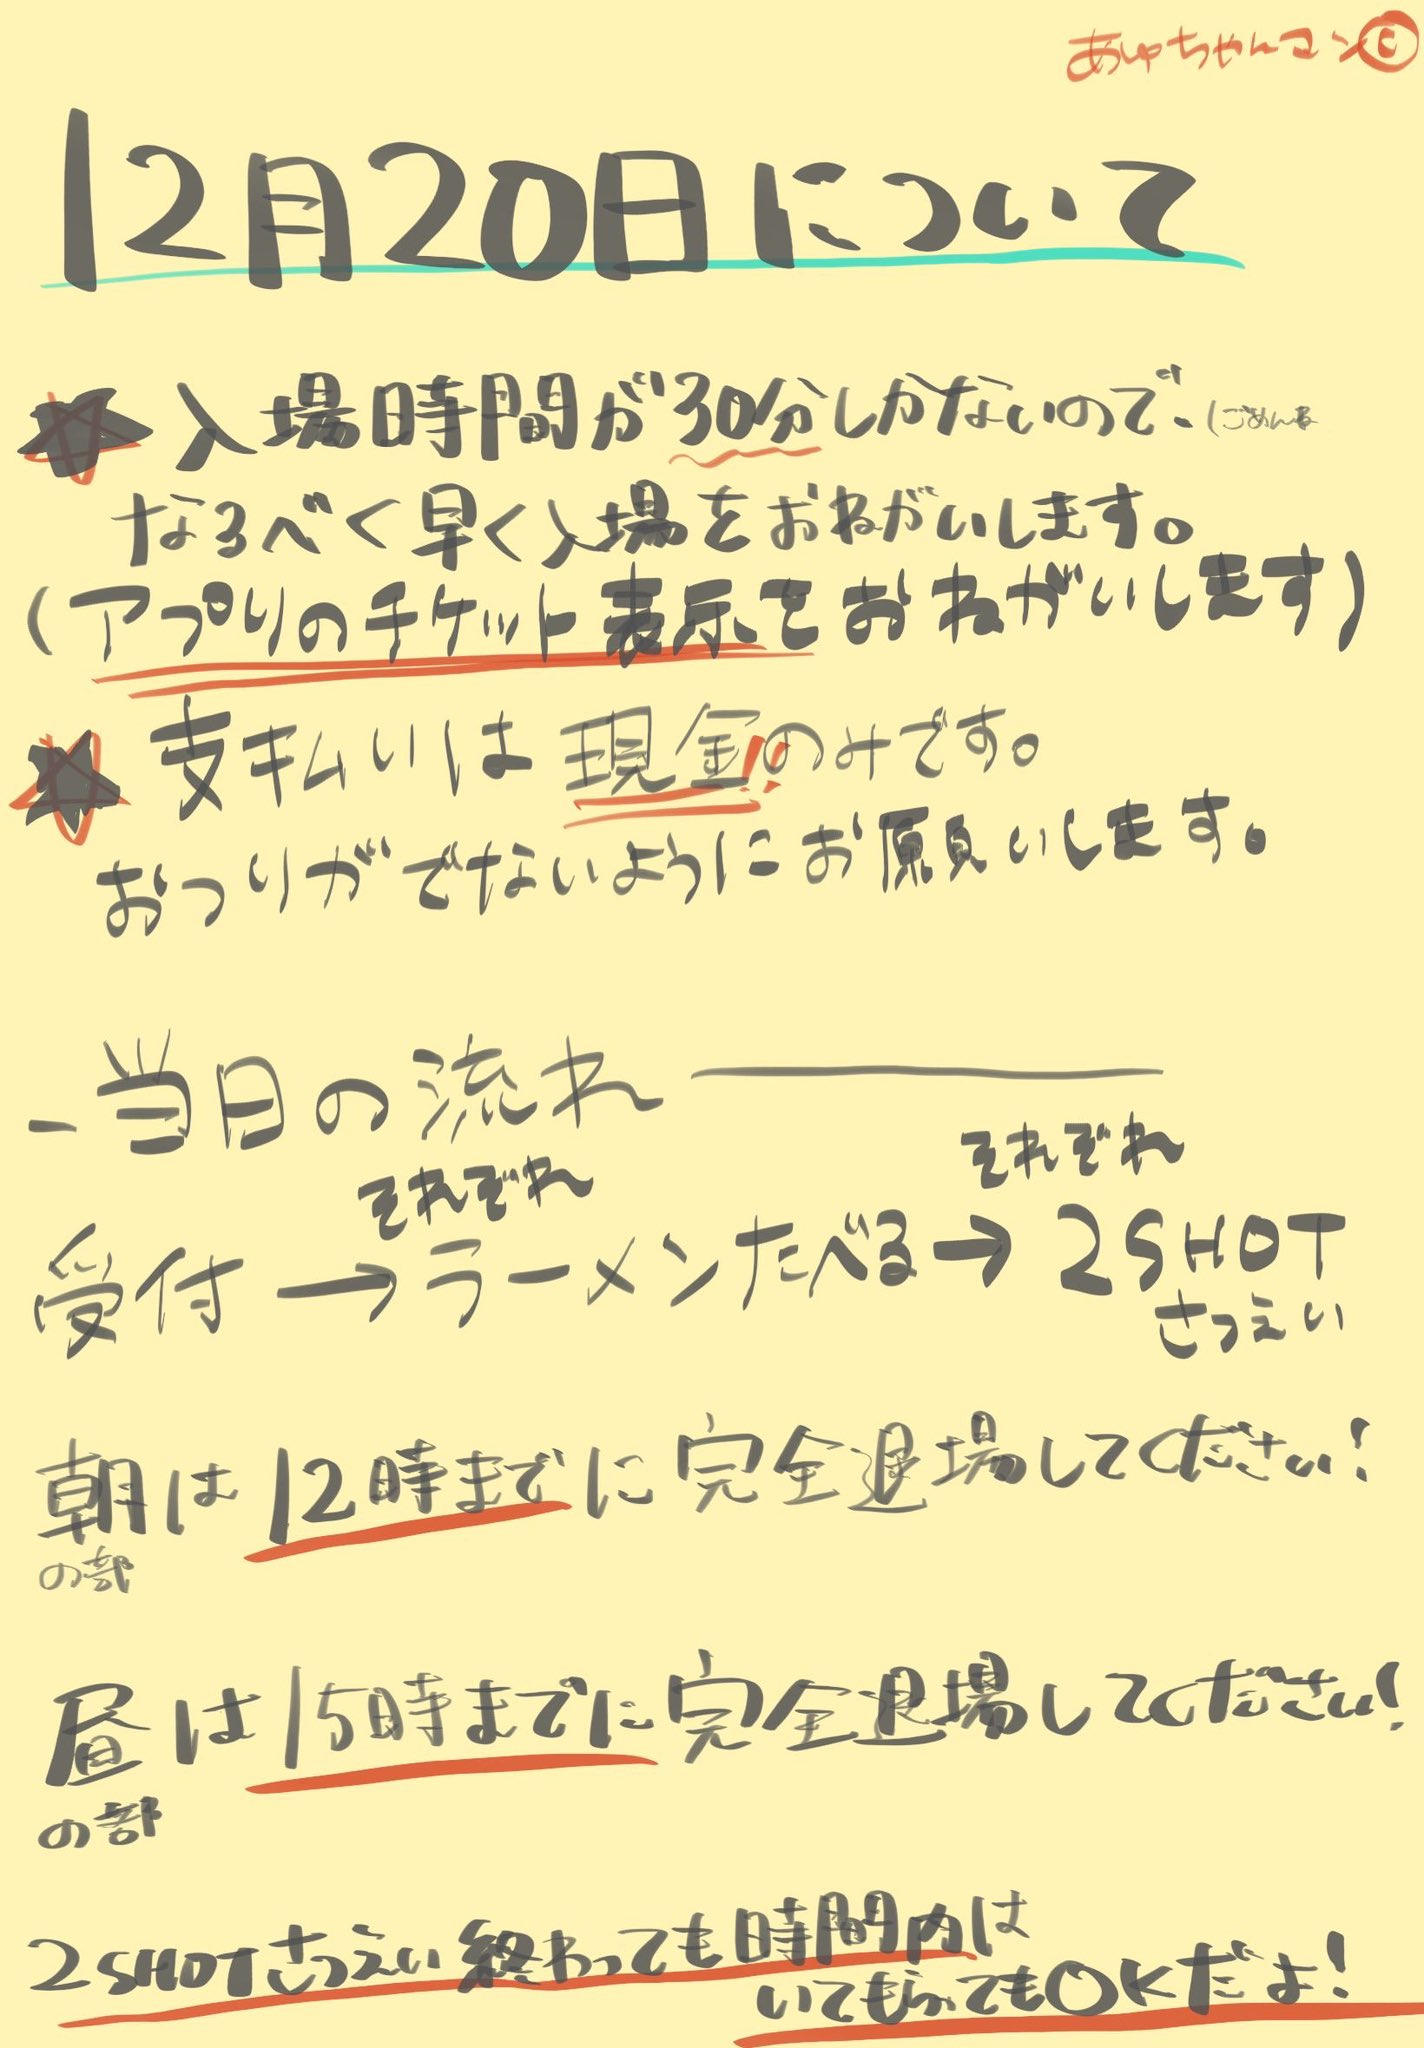 あゆちゃんマン©
12月20日について
★入場時間が30分しかないので、(ごめんる
なるべく早く入場をおねがいします。
(アプリのチケット表示をおねがいします)
★支払いは現金!!のみです。
おつりがでないようにお願いします。
-当日の流れ
それぞれ それぞれ
受付→ラーメンたべる→2SHOT
さつえい
朝は12時までに完全退場してください!
の部
昼は15時までに完全退場してください!
の部
2SHOTさつえい終わっても時間内は
いてもらってもOKだよ!